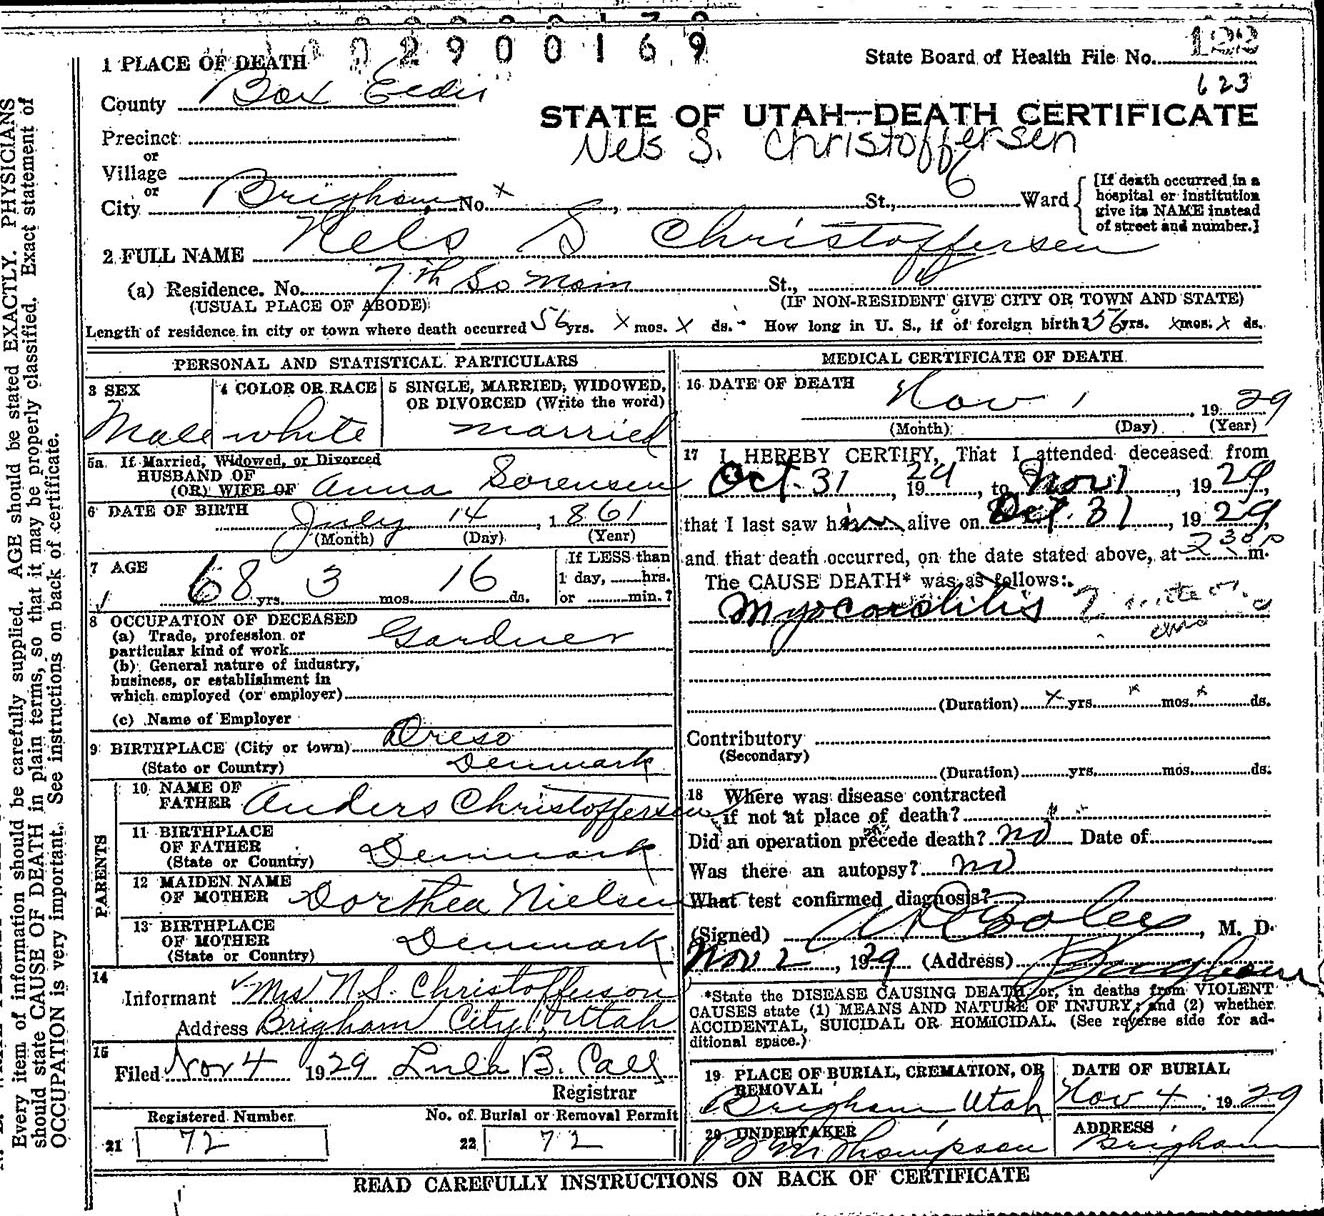 002900169
State Board of Health File No. 123
623
1 PLACE OF DEATH
County Box Elder
STATE OF UTAH—DEATH CERTIFICATE
Nels S. Christoffersen
Precinct
or
Village
or
City Brigham No. x St., 6 Ward
[If death occurred in a
hospital or institution
give its NAME instead
of street and number.]
2 FULL NAME Nels S Christoffersen
(a) Residence. No. 7th So Main St.,
(USUAL PLACE OF ABODE) (IF NON-RESIDENT GIVE CITY OR TOWN AND STATE)
Length of residence in city or town where death occurred 56 yrs. x mos. x ds. How long in U. S., if of foreign birth? 56 yrs. x mos. x ds.
PERSONAL AND STATISTICAL PARTICULARS
3 SEX
Male
4 COLOR OR RACE
white
5 SINGLE, MARRIED, WIDOWED,
OR DIVORCED (Write the word)
married
5a If Married, Widowed, or Divorced
HUSBAND OF
(OR) WIFE OF Anna Sorensen
6 DATE OF BIRTH July 14, 1861
(Month) (Day) (Year)
7 AGE
68 yrs. 3 mos. 16 ds.
If LESS than
1 day, hrs.
or min.?
8 OCCUPATION OF DECEASED
(a) Trade, profession or
particular kind of work Gardner
(b) General nature of industry,
business, or establishment in
which employed (or employer)
(c) Name of Employer
9 BIRTHPLACE (City or town) Dreso
(State or Country) Denmark
PARENTS
10 NAME OF
FATHER Anders Christoffersen
11 BIRTHPLACE
OF FATHER
(State or Country) Denmark
12 MAIDEN NAME
OF MOTHER Dorthea Nielsen
13 BIRTHPLACE
OF MOTHER
(State or Country) Denmark
14
Informant Mrs N.S. Christofferson
Address Brigham City, Utah
15
Filed Nov 4 1929 Lula B. Call
Registrar
Registered Number
21 72
No. of Burial or Removal Permit
22 72
MEDICAL CERTIFICATE OF DEATH
16 DATE OF DEATH
Nov 1, 1929
(Month) (Day) (Year)
17 I HEREBY CERTIFY, That I attended deceased from
Oct. 31, 1929, to Nov 1, 1929,
that I last saw him alive on Oct. 31, 1929,
and that death occurred, on the date stated above, at 2 30 p m.
The CAUSE DEATH* was as follows:
Myocarditis
(Duration) x yrs. x mos. x ds.
Contributory
(Secondary)
(Duration) yrs. mos. ds.
18 Where was disease contracted
if not at place of death?
Did an operation precede death? no Date of
Was there an autopsy? no
What test confirmed diagnosis?
(Signed) A D Cooley, M. D.
Nov 2, 1929 (Address) Brigham
*State the DISEASE CAUSING DEATH, or, in deaths from VIOLENT
CAUSES state (1) MEANS AND NATURE OF INJURY; and (2) whether
ACCIDENTAL, SUICIDAL OR HOMICIDAL. (See reverse side for ad-
ditional space.)
19 PLACE OF BURIAL, CREMATION, OR
REMOVAL
Brigham Utah
DATE OF BURIAL
Nov 4, 1929
20 UNDERTAKER
Thompson
ADDRESS
Brigham
READ CAREFULLY INSTRUCTIONS ON BACK OF CERTIFICATE
Every item of information should be carefully supplied. AGE should be stated EXACTLY. PHYSICIANS
should state CAUSE OF DEATH in plain terms, so that it may be properly classified. Exact statement of
OCCUPATION is very important. See instructions on back of certificate.